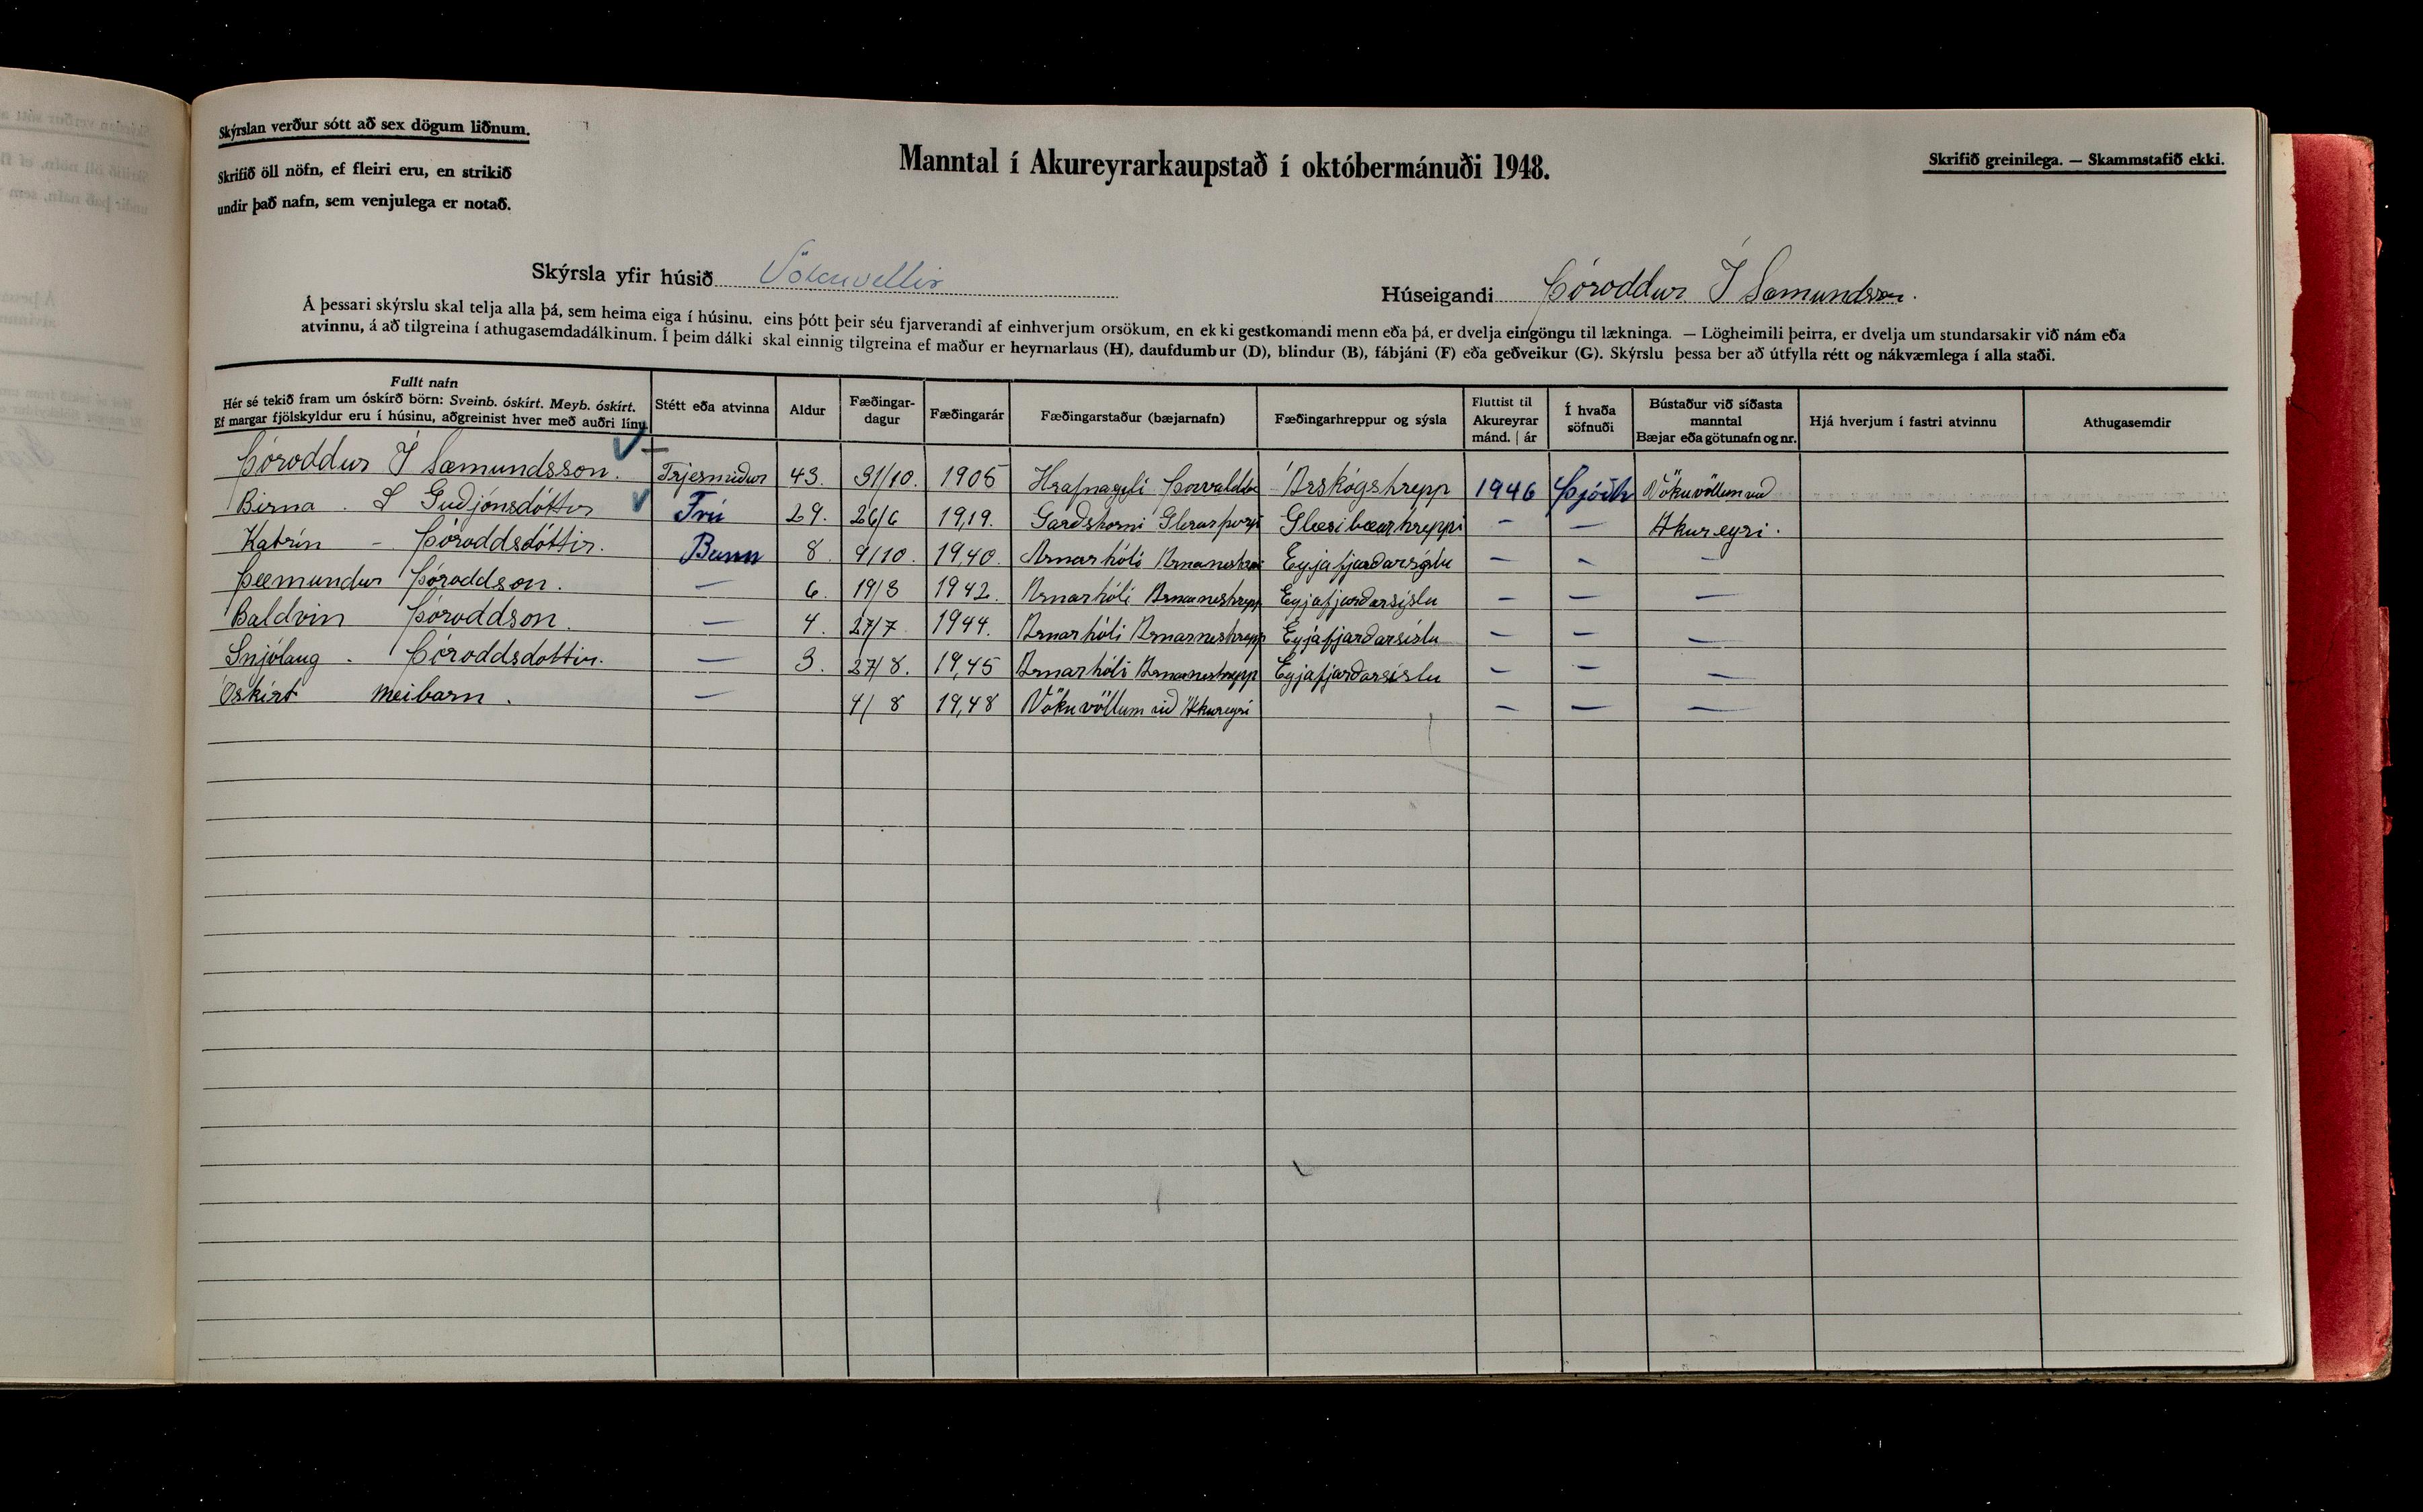 Skýrslan verður sótt að sex dögum liðnum.
Skrifið öll nöfn, ef fleiri eru, en strikið
undir það nafn, sem venjulega er notað.
Manntal í Akureyrarkaupstað í októbermánuði 1948.
Skrifið greinilega. — Skammstafið ekki.
Skýrsla yfir húsið Vökuvellir
Húseigandi Þóroddur I Sæmundsson.
Á þessari skýrslu skal telja alla þá, sem heima eiga í húsinu, eins þótt þeir séu fjarverandi af einhverjum orsökum, en ekki gestkomandi menn eða þá, er dvelja eingöngu til lækninga. — Lögheimili þeirra, er dvelja um stundarsakir við nám eða
atvinnu, á að tilgreina í athugasemdadálkinum. Í þeim dálki skal einnig tilgreina ef maður er heyrnarlaus (H), daufdumbur (D), blindur (B), fábjáni (F) eða geðveikur (G). Skýrslu þessa ber að útfylla rétt og nákvæmlega í alla staði.
Fullt nafn
Hér sé tekið fram um óskírð börn: Sveinb. óskírt. Meyb. óskírt.
Ef margar fjölskyldur eru í húsinu, aðgreinist hver með auðri línu.
Stétt eða atvinna
Aldur
Fæðingar-
dagur
Fæðingarár
Fæðingarstaður (bæjarnafn)
Fæðingarhreppur og sýsla
Fluttist til
Akureyrar
mánd. | ár
Í hvaða
söfnuði
Bústaður við síðasta
manntal
Bæjar eða götunafn og nr.
Hjá hverjum í fastri atvinnu
Athugasemdir
Þóroddur I Sæmundsson. Trjesmiður 43. 31/10. 1905 Hrafnagili Þorvaldsd Árskógshrepp 1946 Þjóðk Vökuvöllum við
Birna . S Guðjónsdóttir Frú 29. 26/6 19,19. Garðshorni Glerárþorpi Glæsibæarhreppi - — Akureyri.
Katrín - Þóroddsdóttir. Barn 8. 9/10. 19,40. Arnarhóli Eyjafjarðarsýslu — - —
Sæmundur Þóroddson. — 6. 19/3 1942. Arnarhóli Arnarneshrepp Eyjafjarðarsíslu — — —
Baldvin Þóroddson. — 4. 27/7 1944. Arnarhóli Arnarneshrepp Eyjafjarðarsíslu — — —
Snjólaug . Þóroddsdottir. — 3. 27/8. 19,45 Arnarhóli Arnarneshrepp Eyjafjarðarsíslu — — —
Óskírt meibarn. — 4/8 19,48 Vökuvöllum við Akureyri — — —